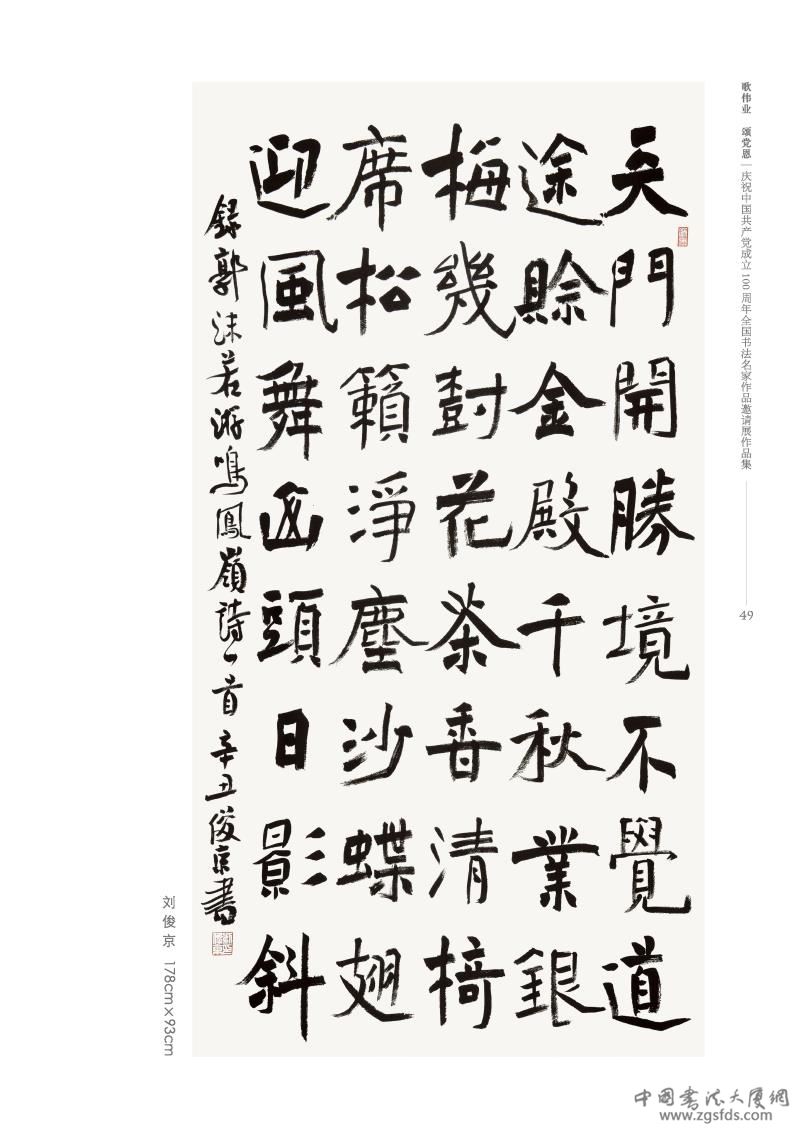 天門開勝境不覺道
途賒金殿千秋業銀
梅幾尌花茶香清椅
席松籟淨塵沙蝶翅
迎風舞山頭日影斜
録郭沫若游鳴鳳嶺詩一首 辛丑俊京書
歌伟业 颂党恩|庆祝中国共产党成立100周年全国书法名家作品邀请展作品集
49
刘俊京 178cm×93cm
中國書法大廈網
www.zgsfds.com